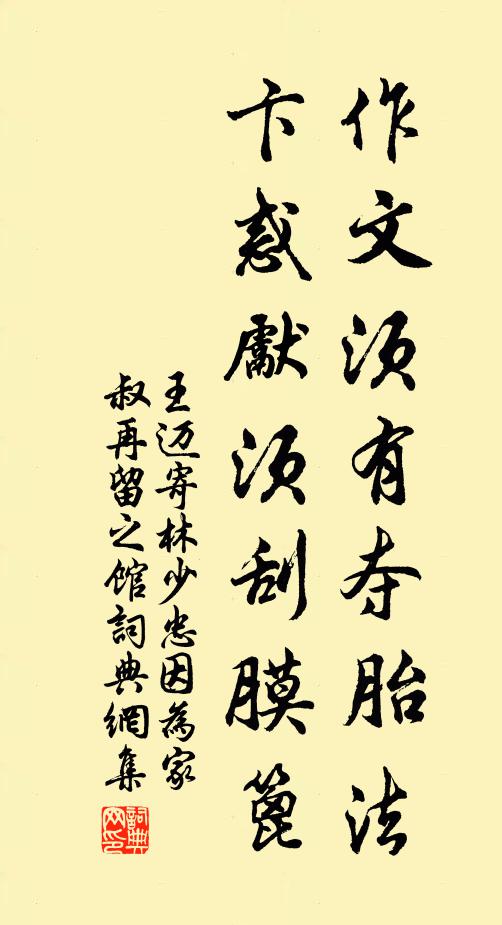 作文须有夺胎法
卞惑獻须刮膜篦
王迈寄林少忠因為家
叔再留之館詞典網集
詞典
网印